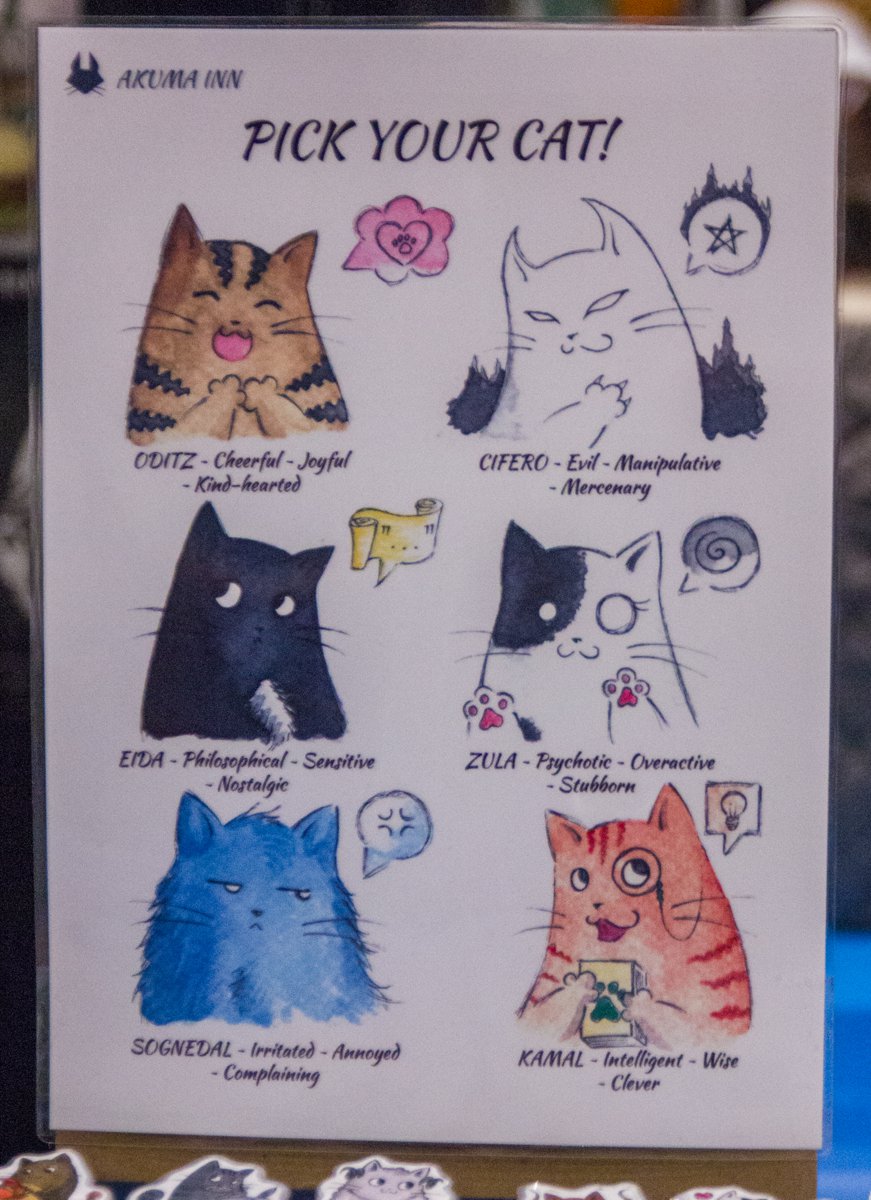 AKUMA INN
PICK YOUR CAT!
ODITZ - Cheerful - Joyful
- Kind-hearted
CIFERO - Evil - Manipulative
- Mercenary
EIDA - Philosophical - Sensitive
- Nostalgic
ZULA - Psychotic - Overactive
- Stubborn
SOGNEDAL - Irritated - Annoyed
- Complaining
KAMAL - Intelligent - Wise
- Clever